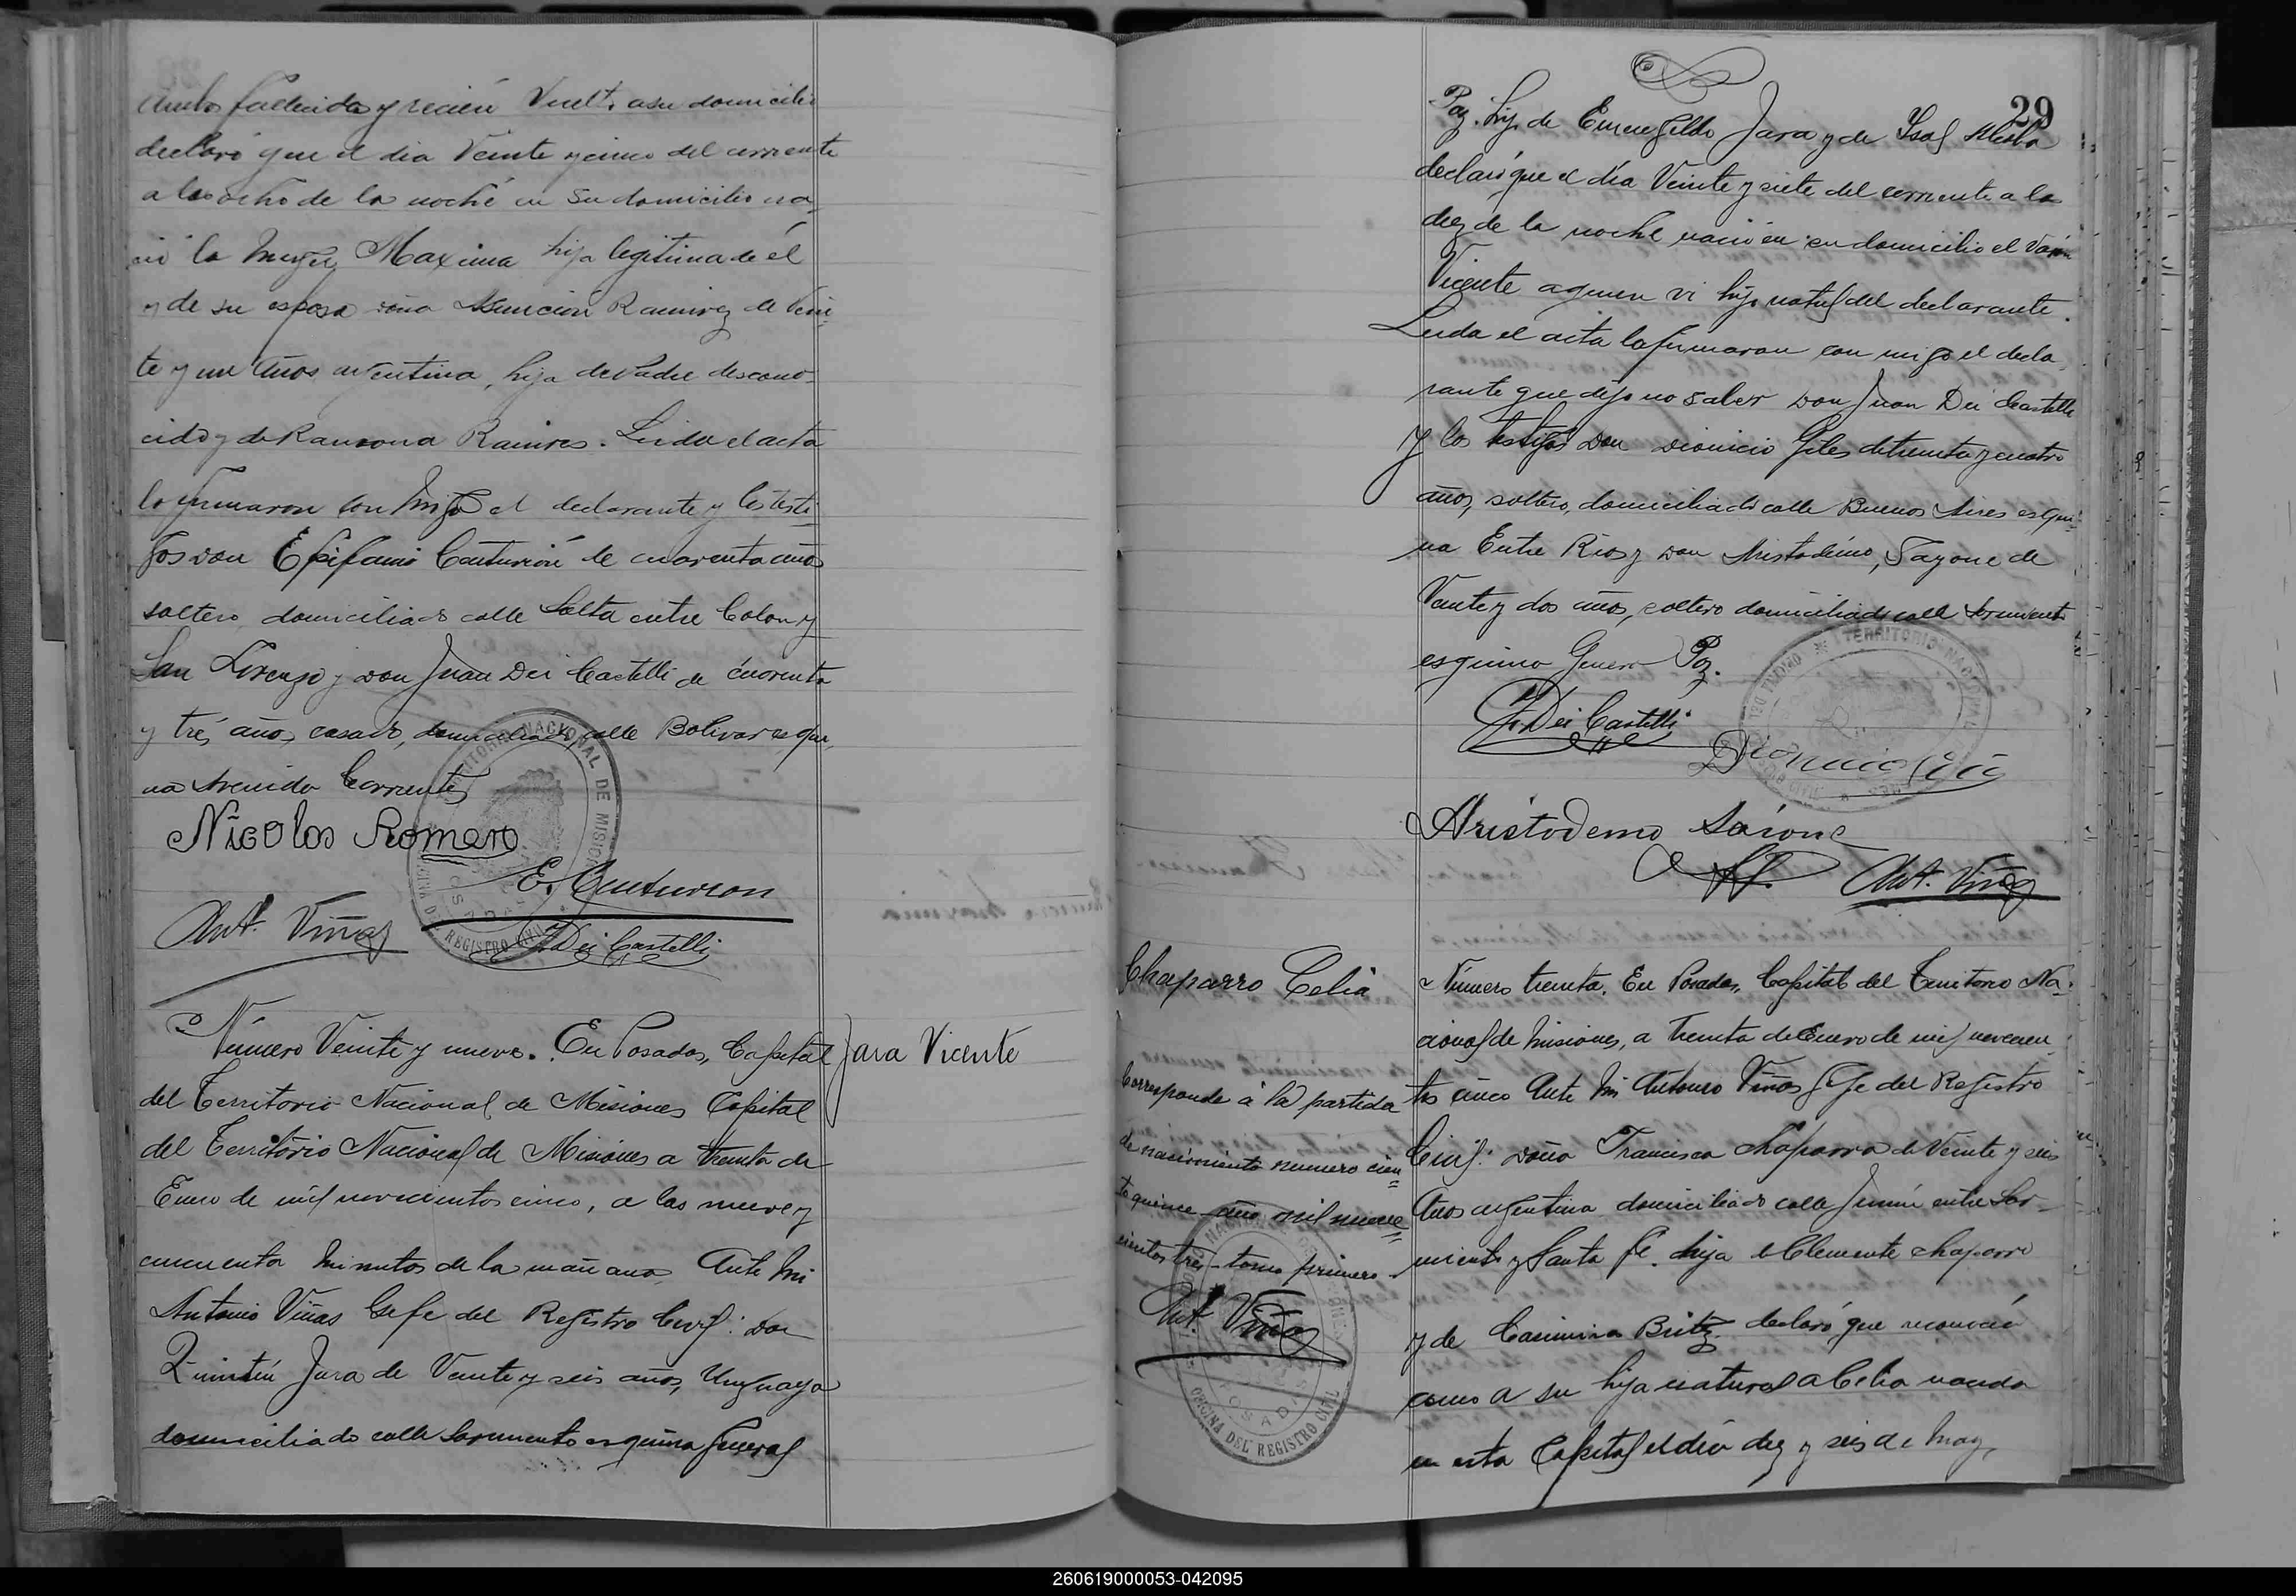 ambos fallecidos y recien Vuelto a su domicilio
declaró que el dia Veinte y cinco del corriente
a las ocho de la noche en su domicilio na-
ció la mujer Maxima hija legitima de él
y de su esposa doña Asuncion Ramirez de Vein-
te y un años argentina, hija de Padre descono-
cido y de Ramona Ramires. Leida el acta
la firmaron con migo el declarante y los testi-
gos don Epifanio Centurión de cuarenta años
soltero domiciliado calle Salta entre Colon y
San Lorenzo y don Juan Dei Castelli de cuarenta
y trés años, casado, domiciliado, calle Bolivar esqui-
na Avenida Corrientes
Nicolas Romero
E. Centurion
Ant. Viñas
J. Dei Castelli
Jara Vicente
Número Veinte y nueve. En Posadas, Capital
del Territorio Nacional de Misiones Capital
del Territorio Nacional de Misiones a treinta de
Enero de mil novecientos cinco, a las nueve y
cincuenta minutos de la mañana Ante mi
Antonio Viñas Gefe del Registro Civil: don
Quintín Jara de Veinte y seis años, Uruguayo
domiciliado calle Sarmiento esquina General
29
Paz. hijo de Emeregildo Jara y de Isabel
declaró que el dia Veinte y siete del corriente a las
diez de la noche nació en su domicilio el Varon
Vicente a quien vi hijo natural del declarante.
Leida el acta la firmaron con migo el decla-
rante que dijo no saber don Juan Dei Castelli
y los testigos don Dionicio Giles de treinta y cuatro
años, soltero, domiciliado calle Buenos Aires esqui-
na Entre Rios y don Aristodemo, Sayone de
Veinte y dos años, soltero domiciliado calle Sarmiento
esquina General Paz.
J. Dei Castelli
Dionicio
Aristodemo Saione
Ant. Viñas
Chaparro Celia
Corresponde á la partida
de nacimiento numero cien
to quince año mil nueve
cientos tres - tomo primero.
Ant. Viñas
Número treinta. En Posadas, Capital del Territorio Na-
cional de Misiones, a treinta de Enero de mil novecien-
tos cinco Ante mi Antonio Viñas Gefe del Registro
Civil: doña Francisca Chaparro de Veinte y seis
años argentina domiciliado calle Junin entre Sar-
miento y Santa Fé. hija de Clemente Chaparro
y de Casimira Britez declaró que reconocia
como a su hija natural a Celia nacida
en esta Capital el dia diez y seis de Mayo